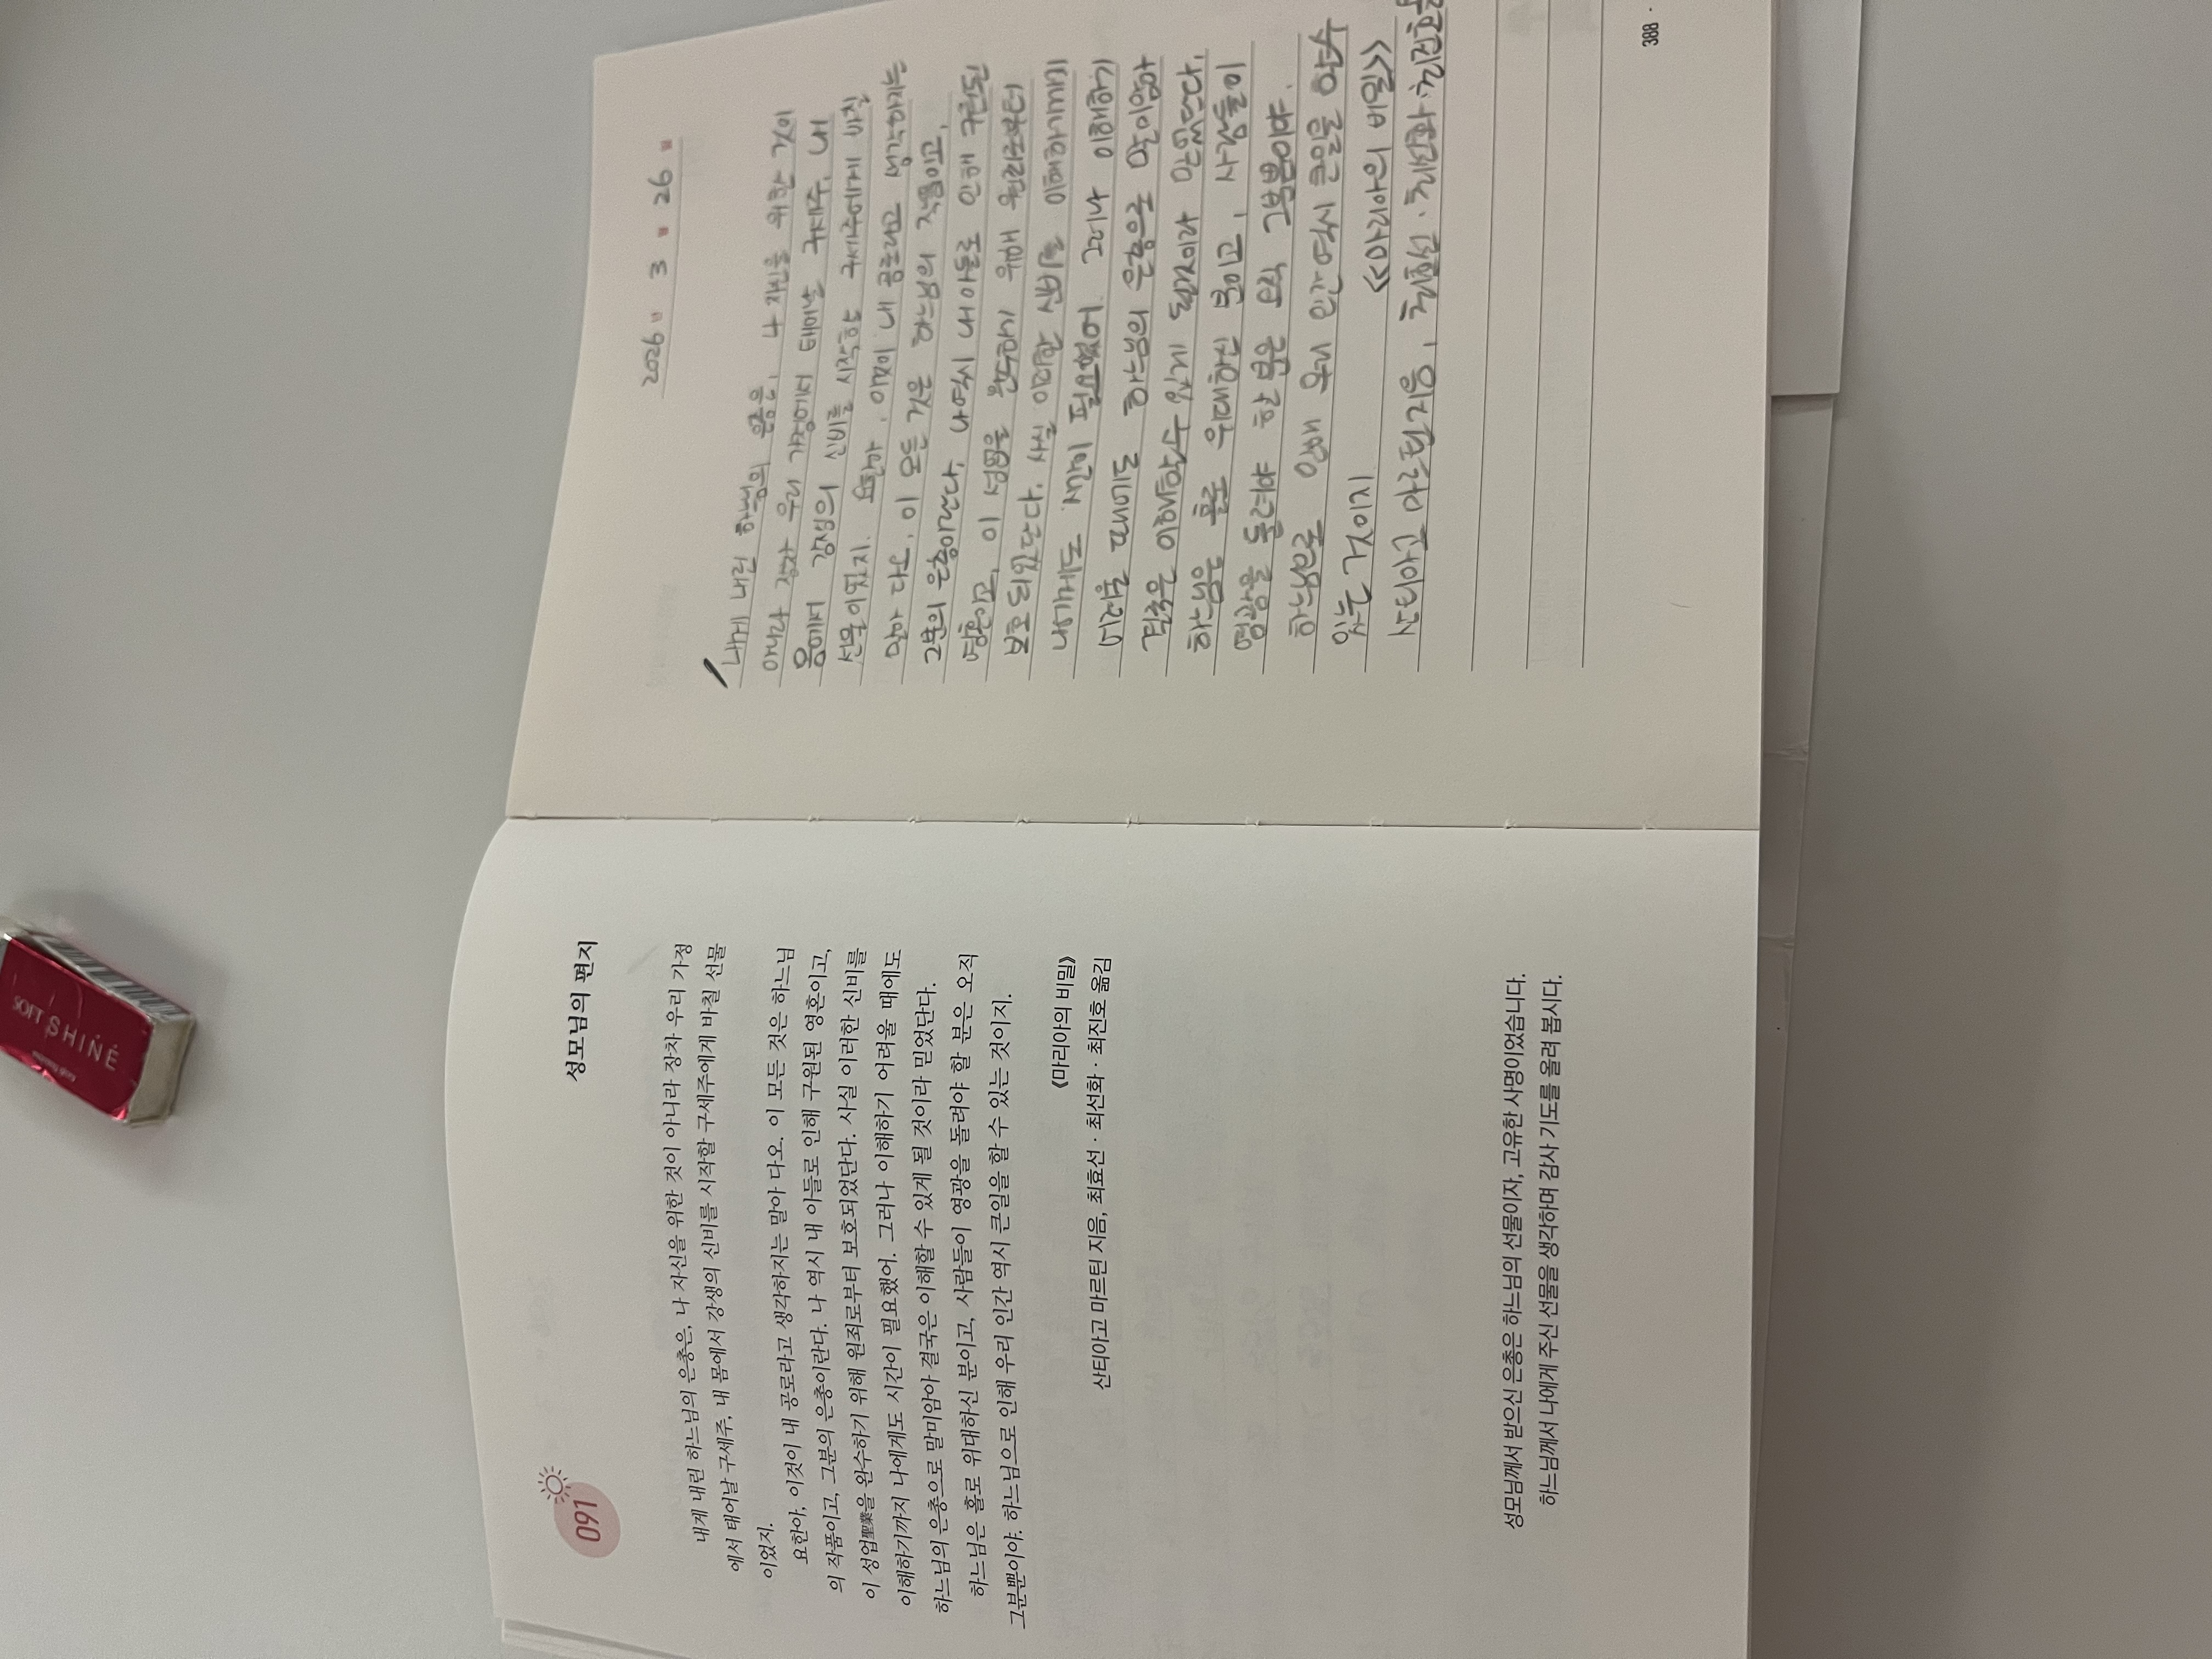 091
성모님의 편지
내게 내린 하느님의 은총은, 나 자신을 위한 것이 아니라 장차 우리 가정
에서 태어날 구세주, 내 몸에서 강생의 신비를 시작할 구세주에게 바칠 선물
이었지.
요한아, 이것이 내 공로라고 생각하지는 말아 다오. 이 모든 것은 하느님
의 작품이고, 그분의 은총이란다. 나 역시 내 아들로 인해 구원된 영혼이고,
이 성업聖業을 완수하기 위해 원죄로부터 보호되었단다. 사실 이러한 신비를
이해하기까지 나에게도 시간이 필요했어. 그러나 이해하기 어려울 때에도
하느님의 은총으로 말미암아 결국은 이해할 수 있게 될 것이라 믿었단다.
하느님은 홀로 위대하신 분이고, 사람들이 영광을 돌려야 할 분은 오직
그분뿐이야. 하느님으로 인해 우리 인간 역시 큰일을 할 수 있는 것이지.
《마리아의 비밀》
산티아고 마르틴 지음, 최효선 · 최선화 · 최진호 옮김
성모님께서 받으신 은총은 하느님의 선물이자, 고유한 사명이었습니다.
하느님께서 나에게 주신 선물을 생각하며 감사 기도를 올려 봅시다.
2026 3 26
내게 내린 하느님의 은총은, 나 자신을 위한 것이
아니라 장차 우리 가정에서 태어날 구세주, 내
몸에서 강생의 신비를 시작할 구세주에게 바칠
선물이었지. 요한아, 이것이 내 공로라고 생각하지는
말아 다오. 이 모든 것은 하느님의 작품이고,
그분의 은총이란다. 나 역시 내 아들로 인해 구원된
영혼이고, 이 성업을 완수하기 위해 원죄로부터
보호되었단다. 사실 이러한 신비를 이해하기까지
나에게도 시간이 필요했어. 그러나 이해하기
어려울 때에도 하느님의 은총으로 말미암아
결국은 이해할 수 있게 될 것이라 믿었단다.
하느님은 홀로 위대하신 분이고, 사람들이
영광을 돌려야 할 분은 오직 그분뿐이야.
하느님으로 인해 우리 인간 역시 큰일을 할 수
있는 것이지 《마리아의 비밀》
산티아고 마르틴 지음, 최효선·최선화·최진호옮김
388
SOFT SHINE